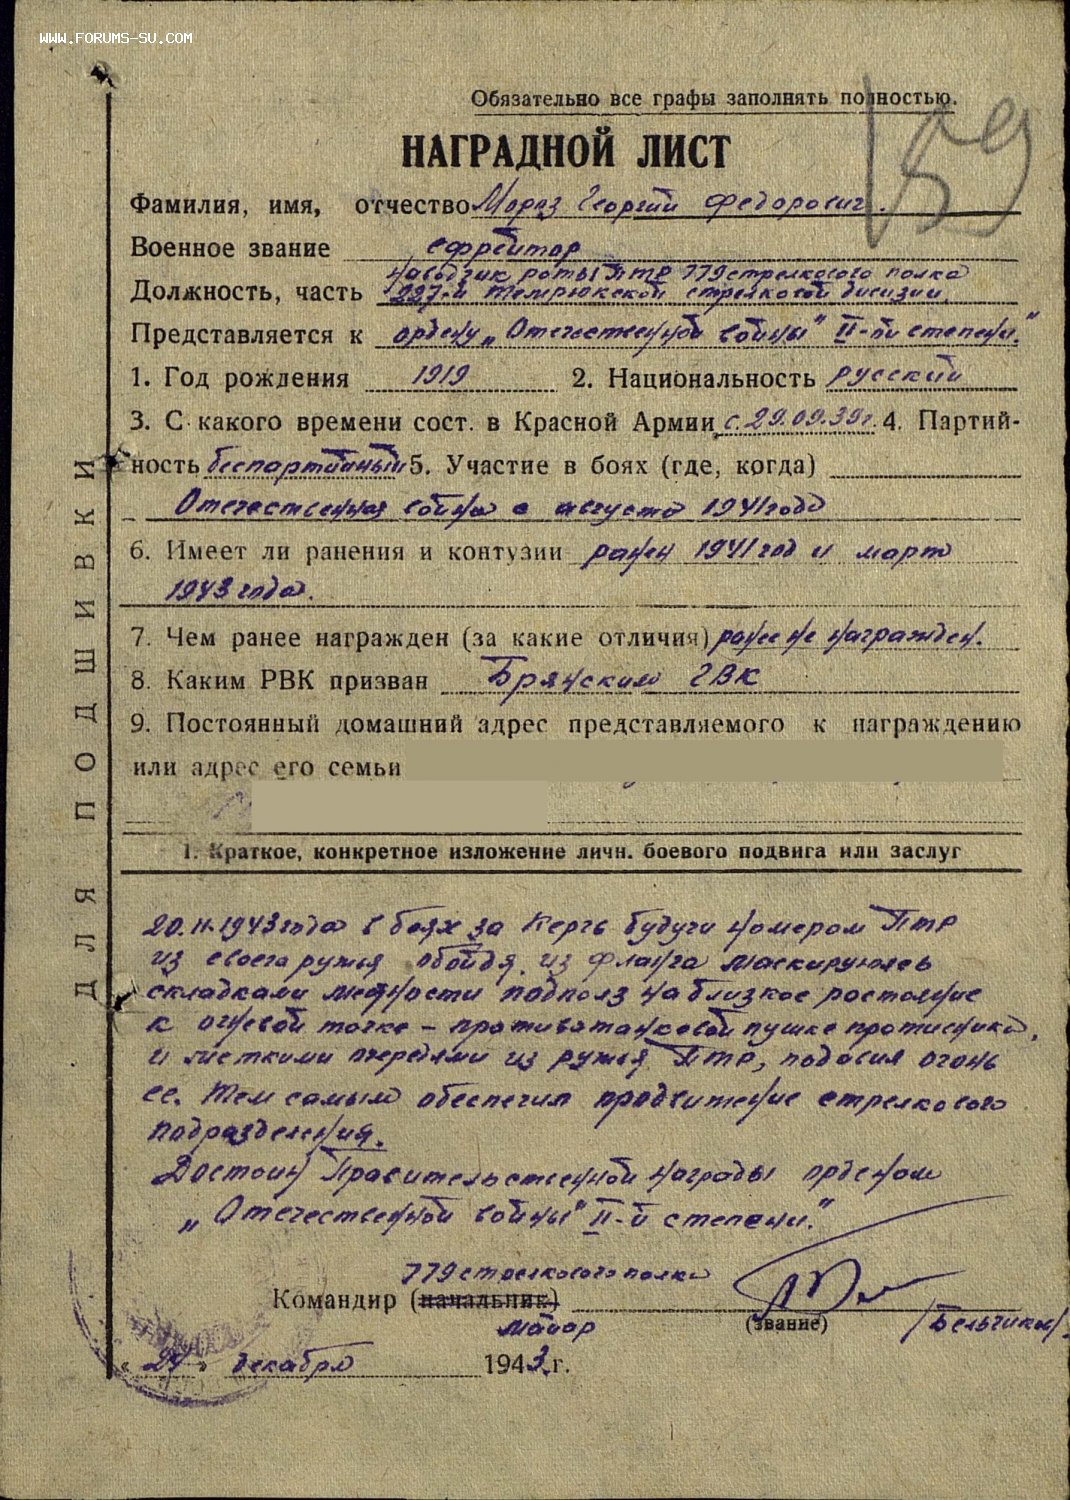 WWW.FORUMS-SU.COM
Обязательно все графы заполнять полностью.
159
НАГРАДНОЙ ЛИСТ
Фамилия, имя, отчество Мораз Георгий Федорович.
Военное звание ефрейтор
наводчик роты ПТР 779 стрелкового полка
Должность, часть 227-й Темрюкской стрелковой дивизии.
Представляется к ордену „Отечественной войны" II-ой степени."
1. Год рождения 1919 2. Национальность русский
3. С какого времени сост. в Красной Армии с 29.09.39г. 4. Партий-
ность беспартийный 5. Участие в боях (где, когда)
Отечественная война с августа 1941 года
6. Имеет ли ранения и контузии ранен 1941 год и март
1943 года.
7. Чем ранее награжден (за какие отличия) ранее не награжден.
8. Каким РВК призван Брянским ГВК
9. Постоянный домашний адрес представляемого к награждению
или адрес его семьи
1. Краткое, конкретное изложение личн. боевого подвига или заслуг
20.11.1943 года в боях за Керчь будучи номером ПТР
из своего ружья обойдя из фланга маскируюясь
складками местности подполз на близкое ростояние
к огневой точке – противатанковой пушке противника,
и меткими очередями из ружья ПТР, подавил огонь
ее. Тем самым обеспечил продвижение стрелкового
подразделения.
Достоин Правительственной награды орденом
„Отечественной войны" II-й степени."
779 стрелкового полка
Командир (начальник)
майор (звание) /Бельчиков/
« 24 » декабря 1943 г.
ДЛЯ ПОДШИВКИ